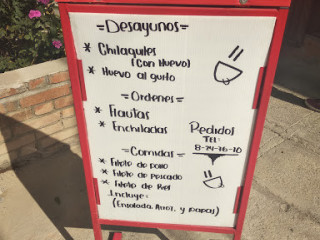 =Desayunos=
* Chilaquiles
(Con Huevo)
* Huevo al gusto
=Ordenes=
* Flautas
* Enchiladas
Pedidos
TEL:
8-74-76-10
=Comidas=
* Filete de pollo
* Filete de pescado
* Filete de Res
Incluye:
(Ensalada, Arroz, y papas)